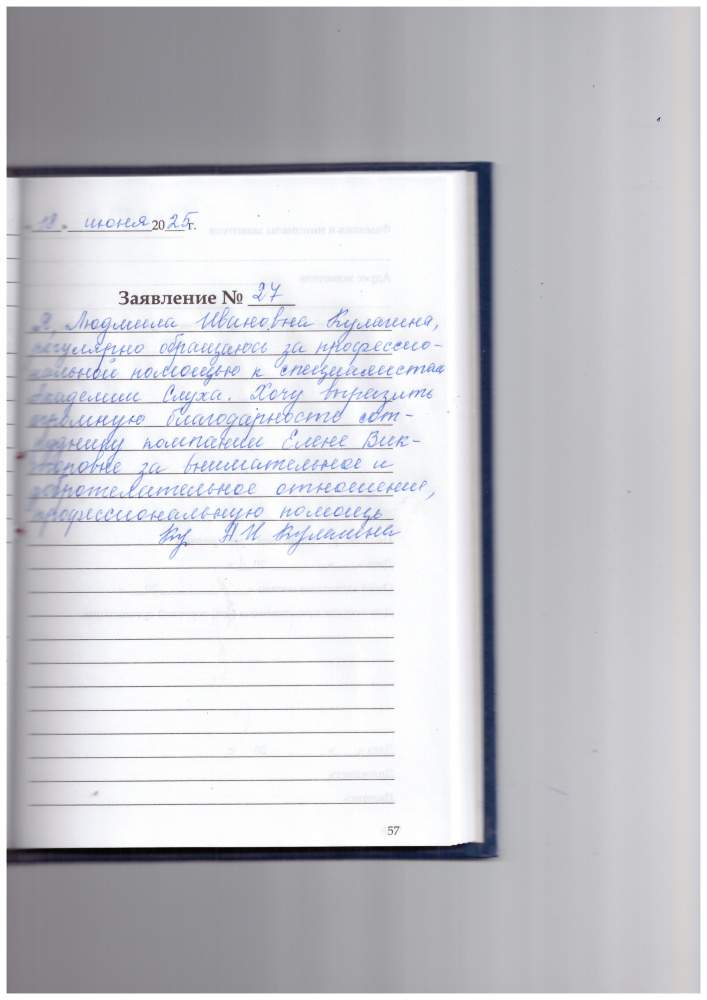 " 18 " июня 2025 г.
Заявление № 27
Я, Людмила Ивановна Кулагина,
регулярно обращаюсь за профессио-
нальной помощью к специалистам
Академии Слуха. Хочу выразить
огромную благодарность сот-
руднику компании Елене Вик-
торовне за внимательное и
доброжелательное отношение,
профессиональную помощь
Ку Л И Кулагина
57